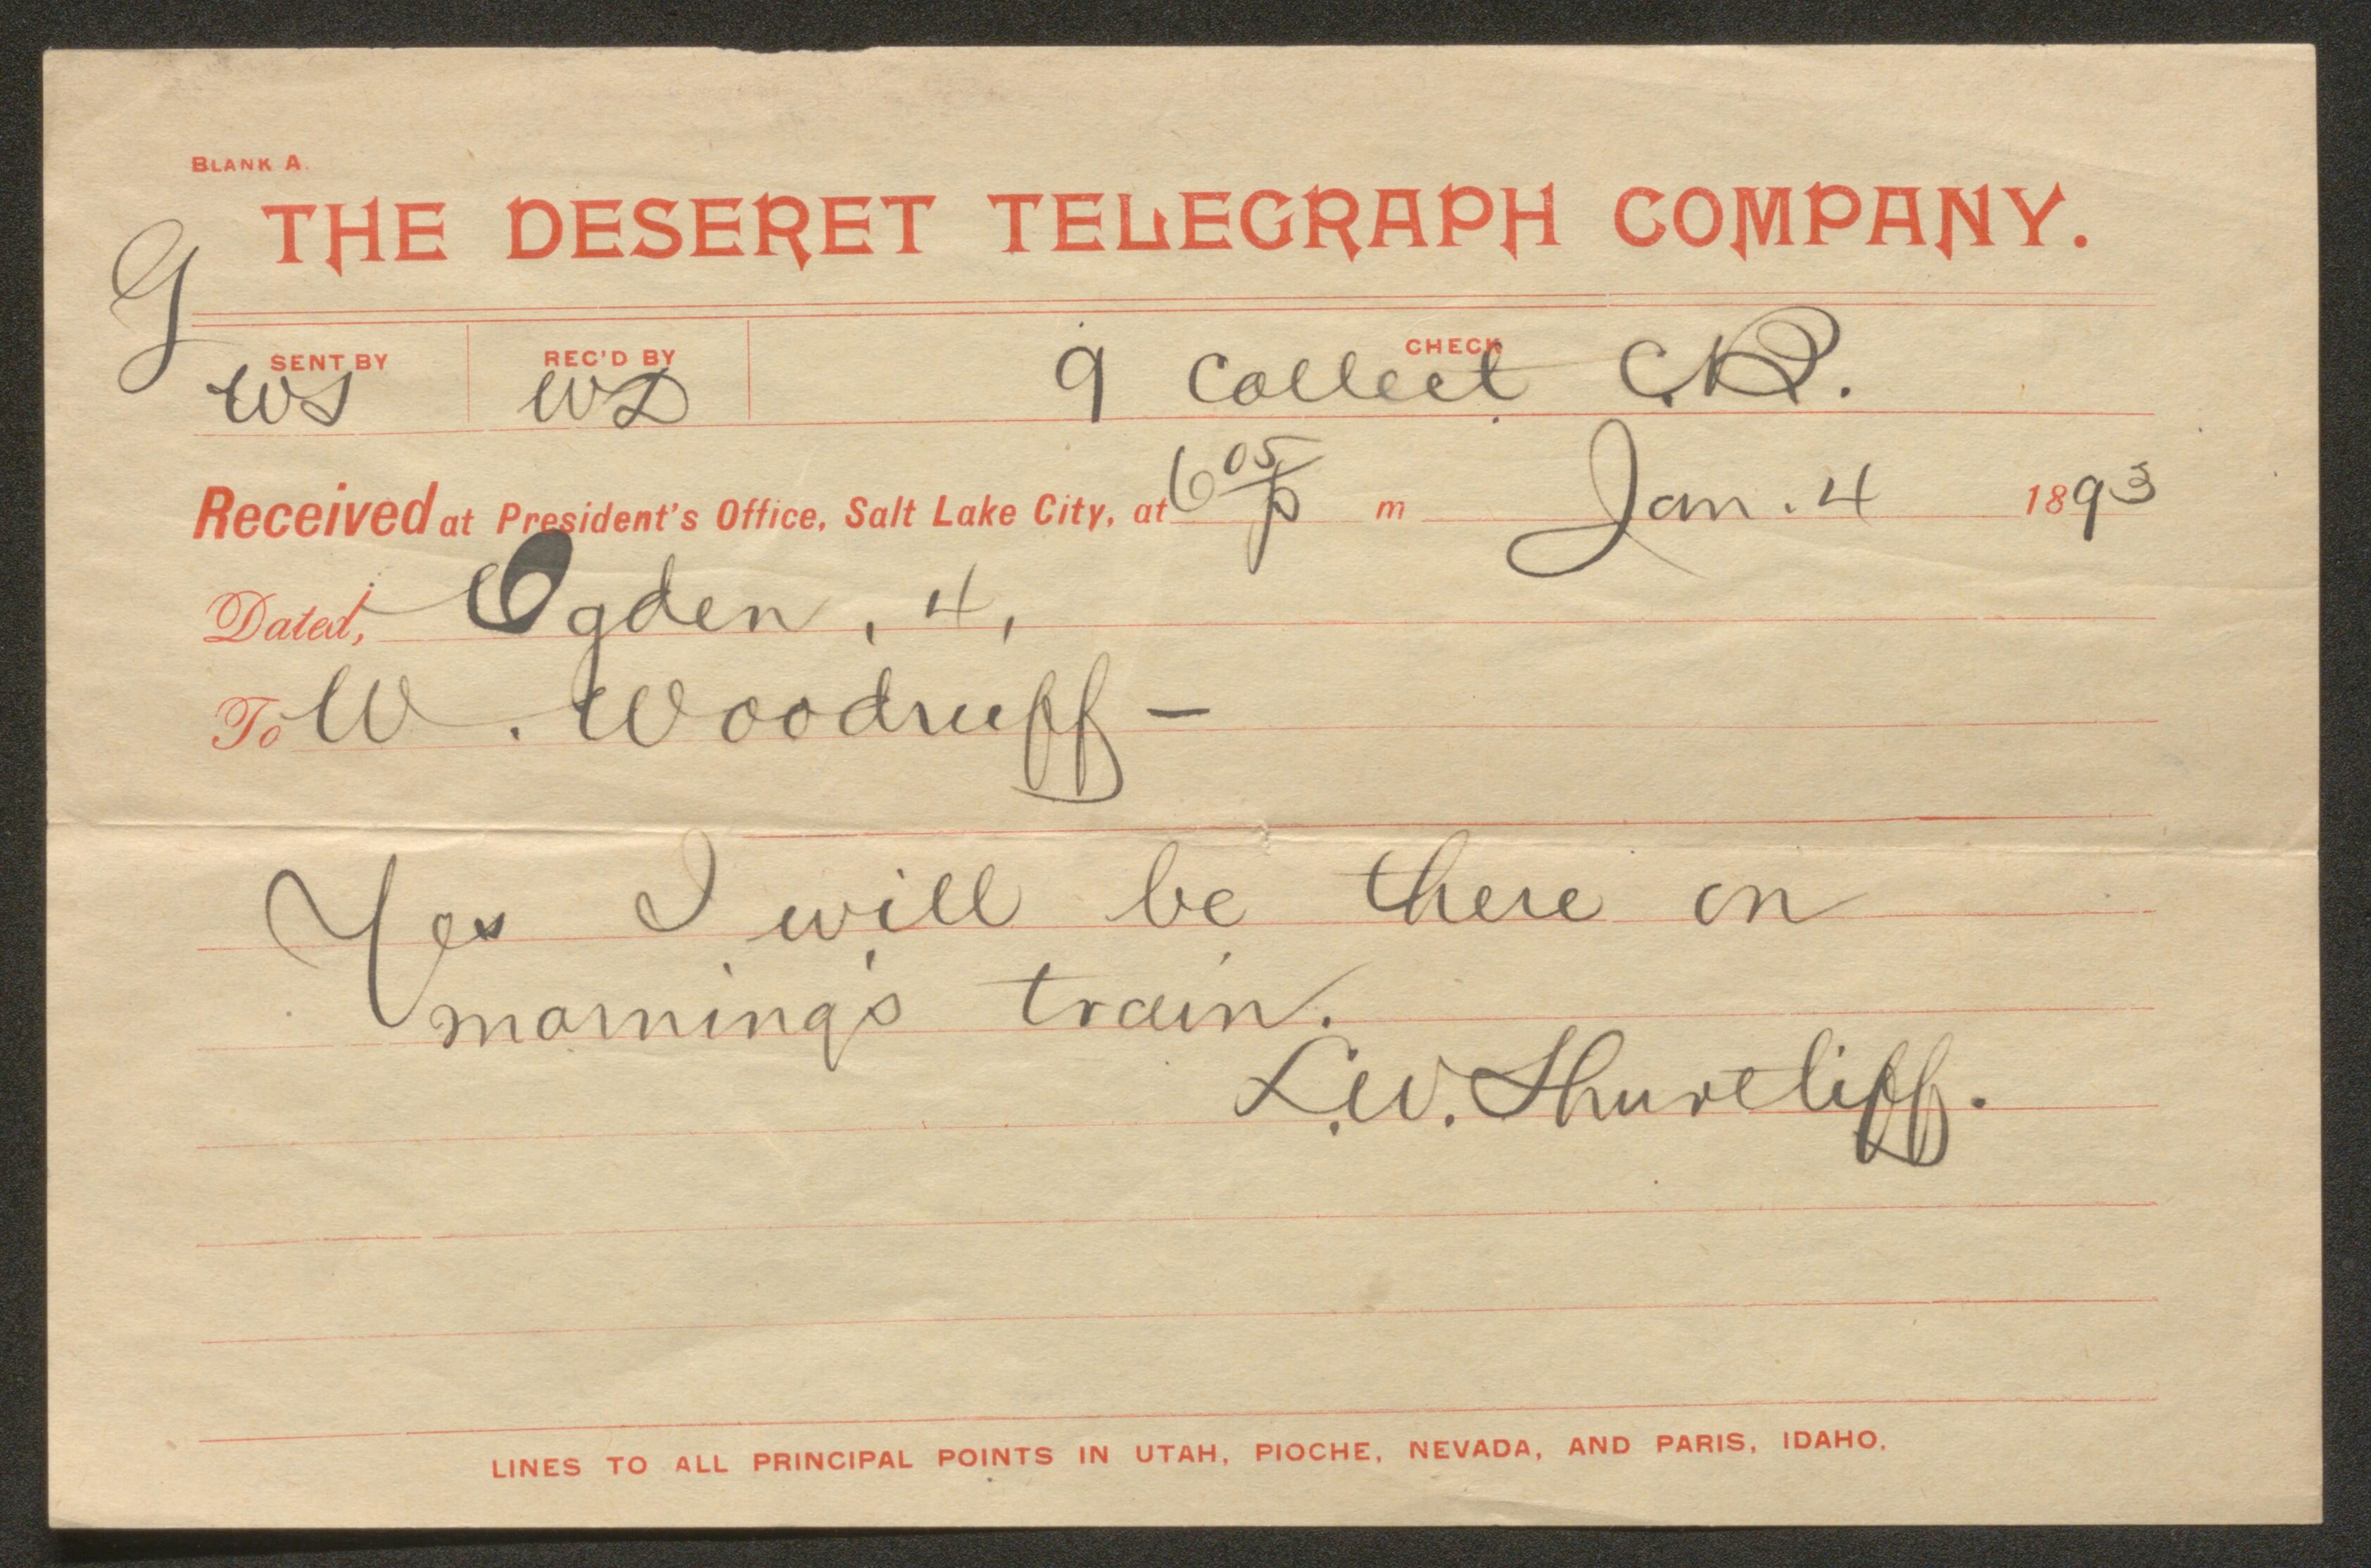 BLANK A.
THE DESERET TELEGRAPH COMPANY.
G
SENT BY REC'D BY CHECK
WS WD 9 Collect
Received at President's Office, Salt Lake City, at 6 05/p m Jan. 4 1893
Dated, Ogden, 4,
To W. Woodruff —
Yes I will be there on
morning's train.
L.W. Shurtliff.
LINES TO ALL PRINCIPAL POINTS IN UTAH, PIOCHE, NEVADA, AND PARIS, IDAHO.